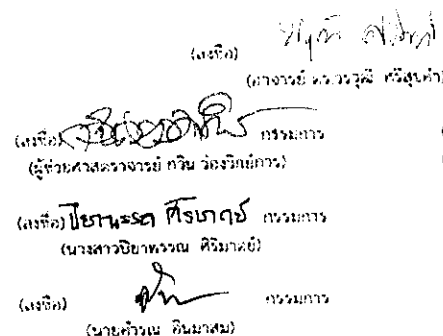 (ลงชื่อ)
(อาจารย์ ดร.วรวุฒิ ศรีสุขคำ)
(ลงชื่อ) กรรมการ
(ผู้ช่วยศาสตราจารย์ กวิน ว่องวิกย์การ)
(ลงชื่อ) กรรมการ
(นางสาวปิยาพรรณ ศิริมาตย์)
(ลงชื่อ) กรรมการ
(นายคำรณ อินมาสม)